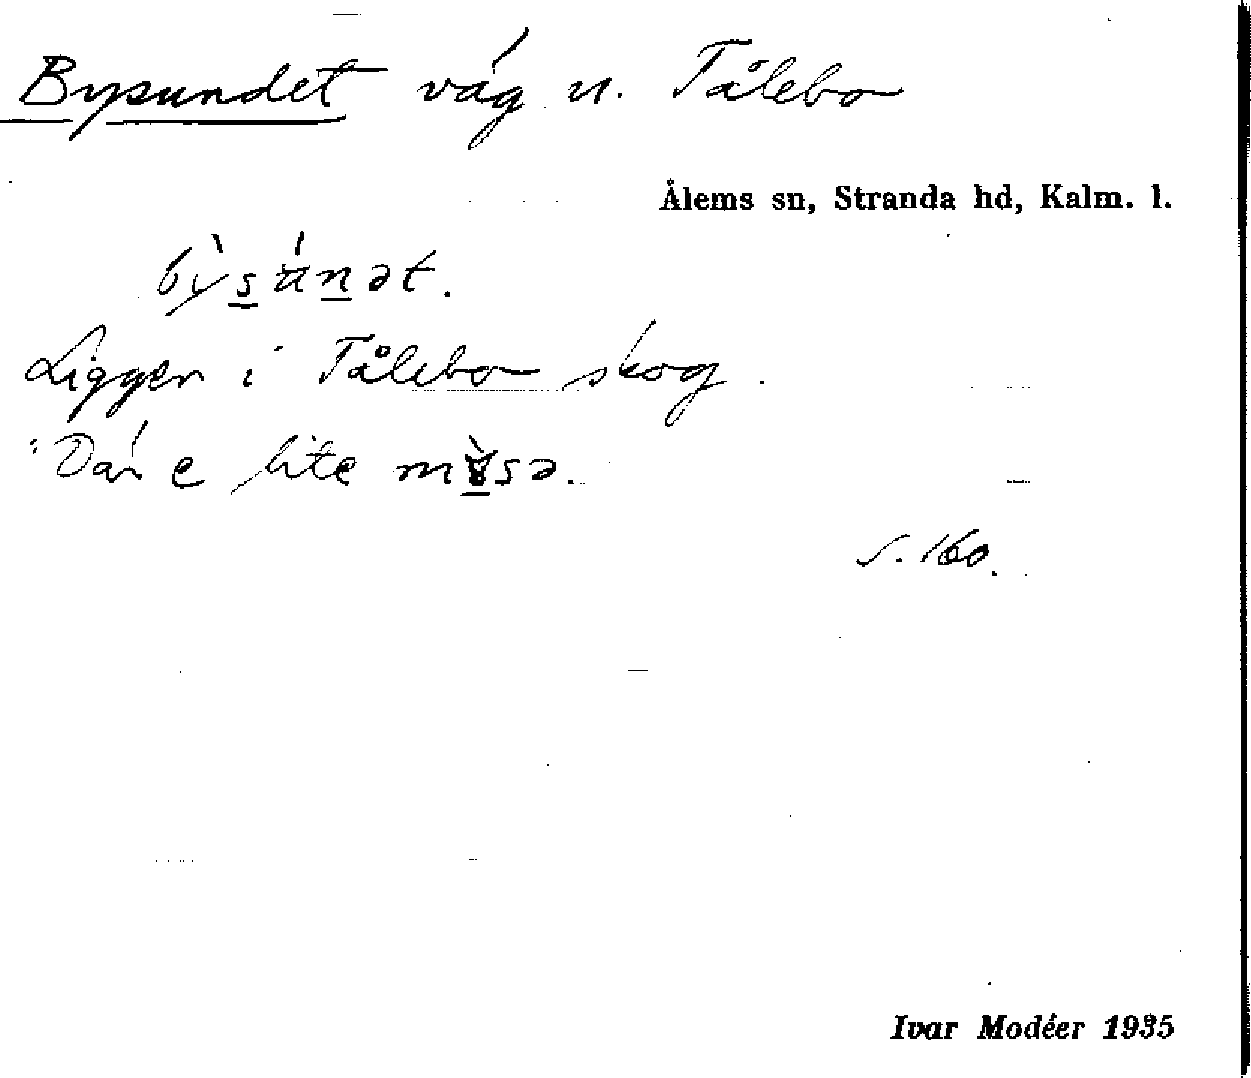 Bysundet väg u. Tålebo
Ålems sn, Stranda hd, Kalm. l.
bỳsúnət.
Ligger i Tålebo skog.
"Där e lite
s. 160.
Ivar Modéer 1935